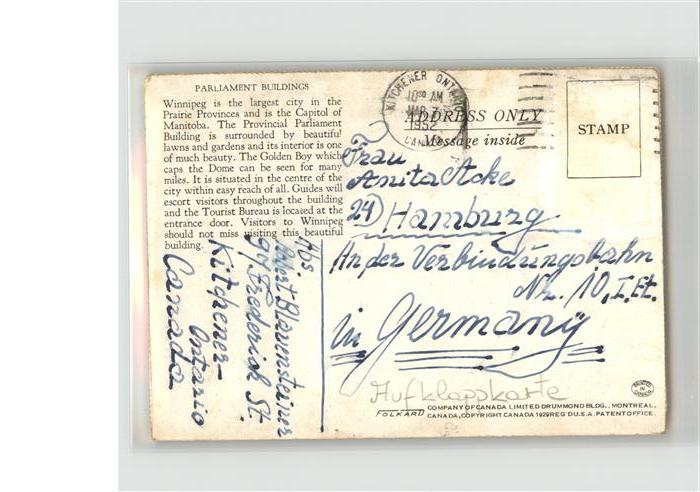 PARLIAMENT BUILDINGS
Winnipeg is the largest city in the
Prairie Provinces and is the Capitol of
Manitoba. The Provincial Parliament
Building is surrounded by beautiful
lawns and gardens and its interior is one
of much beauty. The Golden Boy which
caps the Dome can be seen for many
miles. It is situated in the centre of the
city within easy reach of all. Guides will
escort visitors throughout the building
and the Tourist Bureau is located at the
entrance door. Visitors to Winnipeg
should not miss visiting this beautiful
building.
KITCHENER ONTARIO
10 AM
MAR 7
1952
CANADA
ADDRESS ONLY
Message inside
STAMP
Frau
Anita Acke
24) Hamburg
An der Verbindungsbahn
Nr. 10, I. Et.
in Germany
Abs
Blevensteiner
Frederick St.
Kitchener-
Ontario
Canada
Aufklappkarte
FOLKARD COMPANY OF CANADA LIMITED DRUMMOND BLDG., MONTREAL,
CANADA, COPYRIGHT CANADA 1929 REG'D U.S.A. PATENT OFFICE.
PRINTED
IN
CANADA